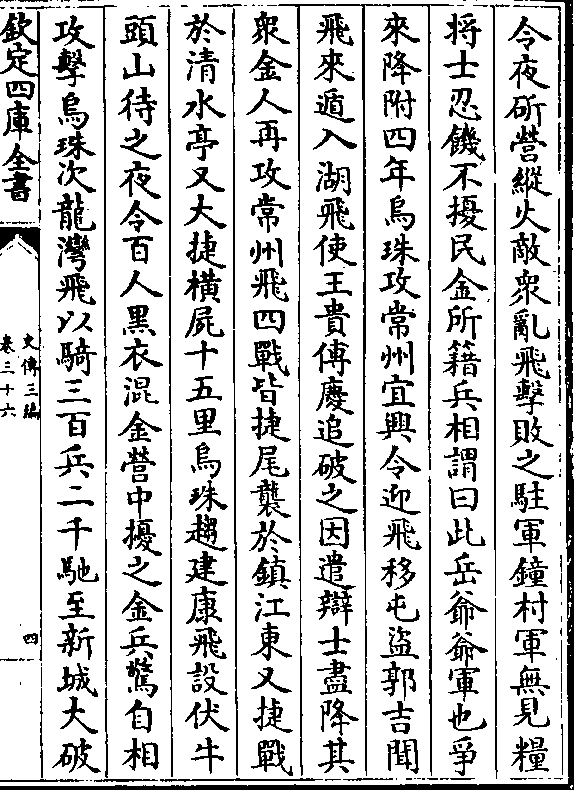 令夜斫營縱火敵衆亂飛擊敗之駐軍鐘村軍無見糧
将士忍饑不擾民金所籍兵相謂曰此岳爺爺軍也爭
來降附四年烏珠攻常州宜興令迎飛移屯盜郭吉聞
飛來遁入湖飛使王貴傅慶追破之因遣辯士盡降其
衆金人再攻常州飛四戰皆捷尾襲於鎮江東又捷戰
於清水亭又大捷橫屍十五里烏珠趨建康飛設伏牛
頭山待之夜令百人黑衣混金營中擾之金兵驚自相
攻擊烏珠次龍灣飛以騎三百兵二千馳至新城大破
欽定四庫全書
史傳三編
卷三十六
四